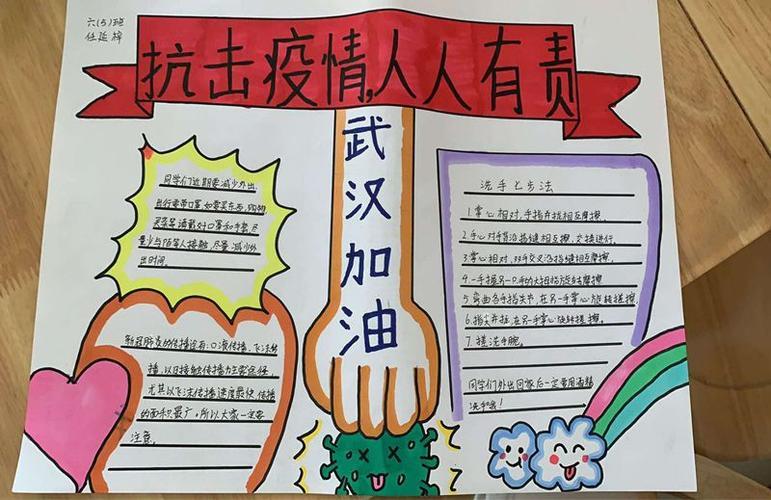 六(5)班
任延梓
抗击疫情,人人有责
武汉加油
同学们近期要减少外出
出行要带口罩,如需买东西,购物
买菜等请戴好口罩和手套,尽
量少与陌等人接触,尽量减少外
出时间。
新冠肺炎的传播途有:口液传播、飞沫传
播,以及接触传播为主要途径,
尤其以飞沫传播速度最快,传播
的面积最广,所以大家一定要
注意。
洗手七步法
1.掌心相对,手指并拢相互摩擦。
2.手心对手背沿指缝相互摩擦,交换进行。
3.掌心相对,双手交叉沿指缝相互摩擦。
4.一手握另一只手的大拇指旋转摩擦
5.弯曲各手指关节,在另一手掌心旋转搓擦
6.指尖并拢,在另一手掌心旋转搓擦。
7.搓洗手腕。
同学们外出回家后一定要用酒精
洗手哦!